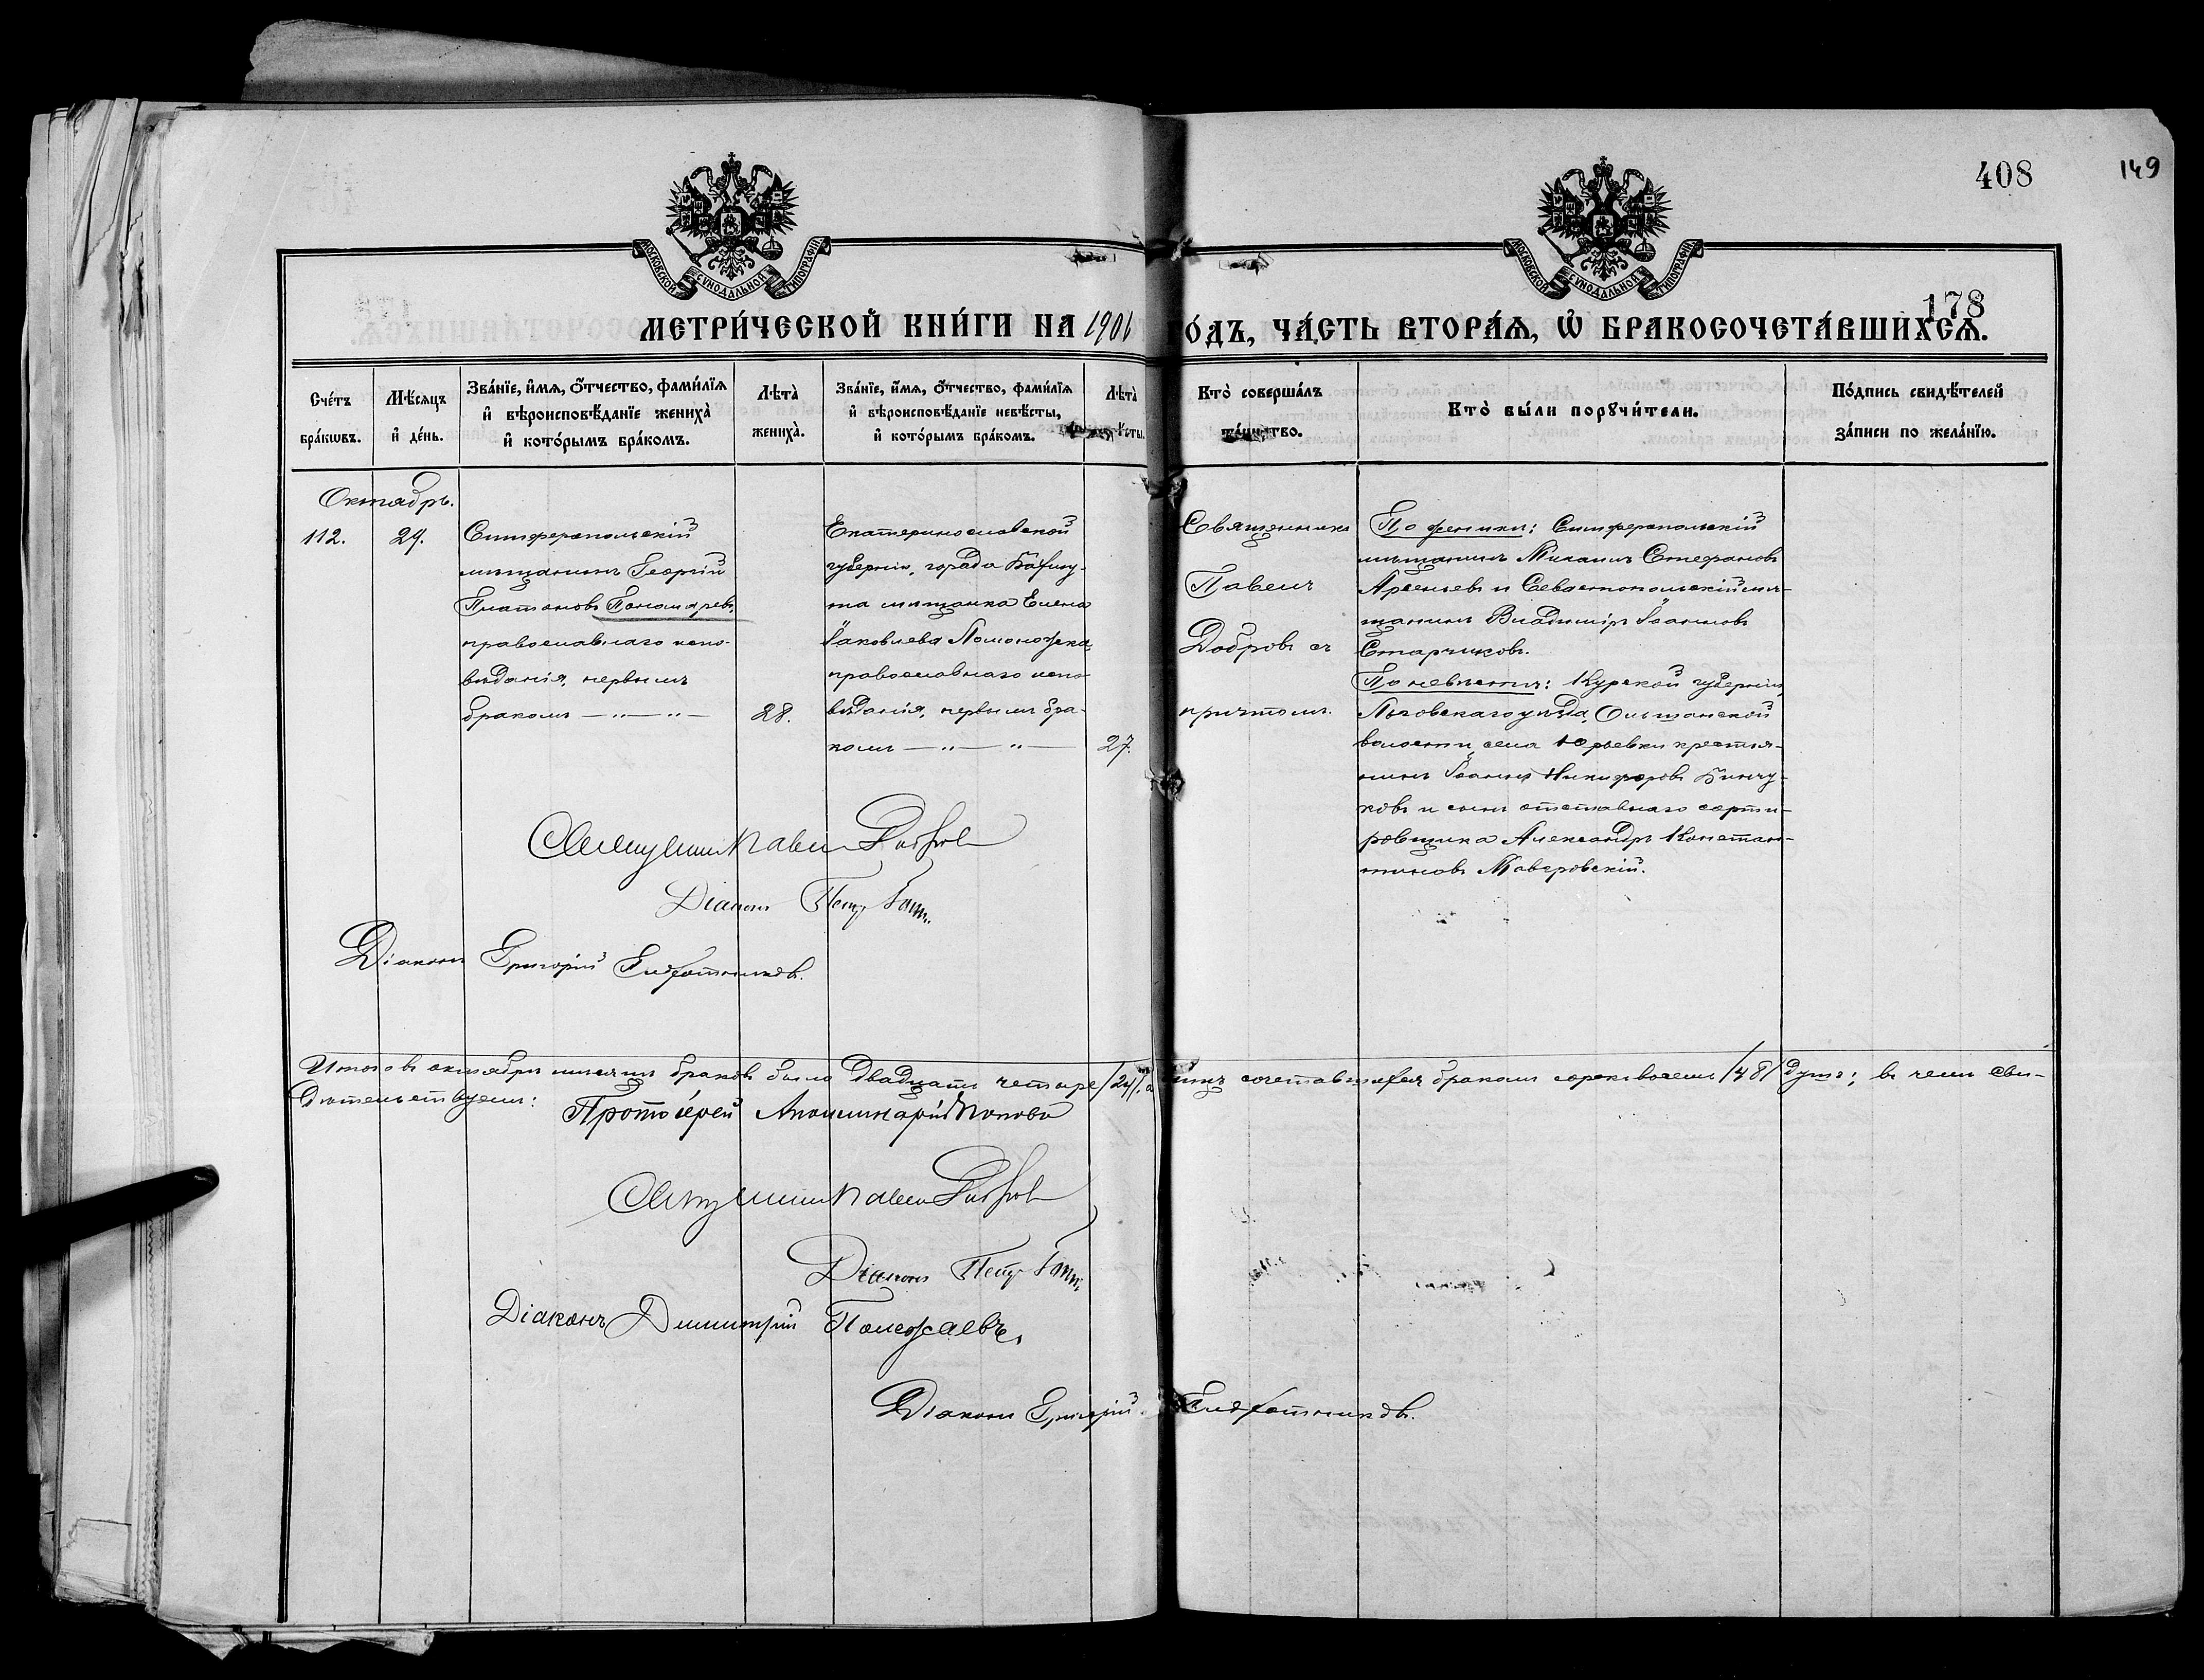 408
149
178
МОСКОВСКОЙ СѴНОДАЛЬНОЙ ТИПОГРАФІИ
МОСКОВСКОЙ СѴНОДАЛЬНОЙ ТИПОГРАФІИ
МЕТРИ́ЧЕСКОЙ КНИ́ГИ НА 1901 ГО́ДЪ, ЧА́СТЬ ВТОРА́Я, Ѡ БРАКОСОЧЕТА́ВШИХСЯ.
Сче́тъ
бра́кѡвъ.
Мѣ́сяцъ
и де́нь.
Зва́нїе, и́мя, о́тчество, фами́лїя
и вѣроисповѣ́данїе жениха̀
и кото́рымъ бра́комъ.
Лѣта̀
жениха̀.
Зва́нїе, и́мя, о́тчество, фами́лїя
и вѣроисповѣ́данїе невѣ́сты,
и кото́рымъ бра́комъ.
Лѣта̀
невѣ́сты.
Кто̀ соверша́лъ
та́инство.
Кто̀ бы́ли порꙋчи́тели.
По́дпись свидѣ́телей
за́писи по жела́нїю.
Октябрь.
112.
29.
Симферопольскій
мѣщанинъ Георгій
Платоновъ Пономаревъ,
православнаго испо-
вѣданія, первымъ
бракомъ — „ — „ —
28.
Екатеринославской
губерніи, города Бахму-
та мѣщанка Елена
Іаковлева
православнаго испо-
вѣданія, первымъ бра-
комъ — „ — „ —
27.
Священникъ
Павелъ
Добровъ съ
причтомъ.
По женихѣ: Симферопольскій
мѣщанинъ Михаилъ Стефановъ
Арсеньевъ и Севастопольскій мѣ-
щанинъ Владиміръ Іоанновъ
Старчиковъ.
По невѣстѣ: Курской губерніи,
Льговскаго уѣзда, Ольшанской
волости, села Юрьевки крестья-
нинъ Іоаннъ Никифоровъ
ковъ и сынъ отставнаго сорти-
ровщика Александръ Констан-
тиновъ Маверовскій.
Священникъ Павелъ Добровъ
Діаконъ Петръ
Діаконъ Григорій
Итого въ октябрѣ мѣсяцѣ браковъ было двадцать четыре /24/, а лицъ сочетавшихся бракомъ сорокъ восемь /48/ душъ; въ чемъ сви-
дѣтельствуемъ:
Протоіерей Аполлинарій Поповъ
Священникъ Павелъ Добровъ
Діаконъ Петръ
Діаконъ Димитрій Полежаевъ.
Діаконъ Григорій